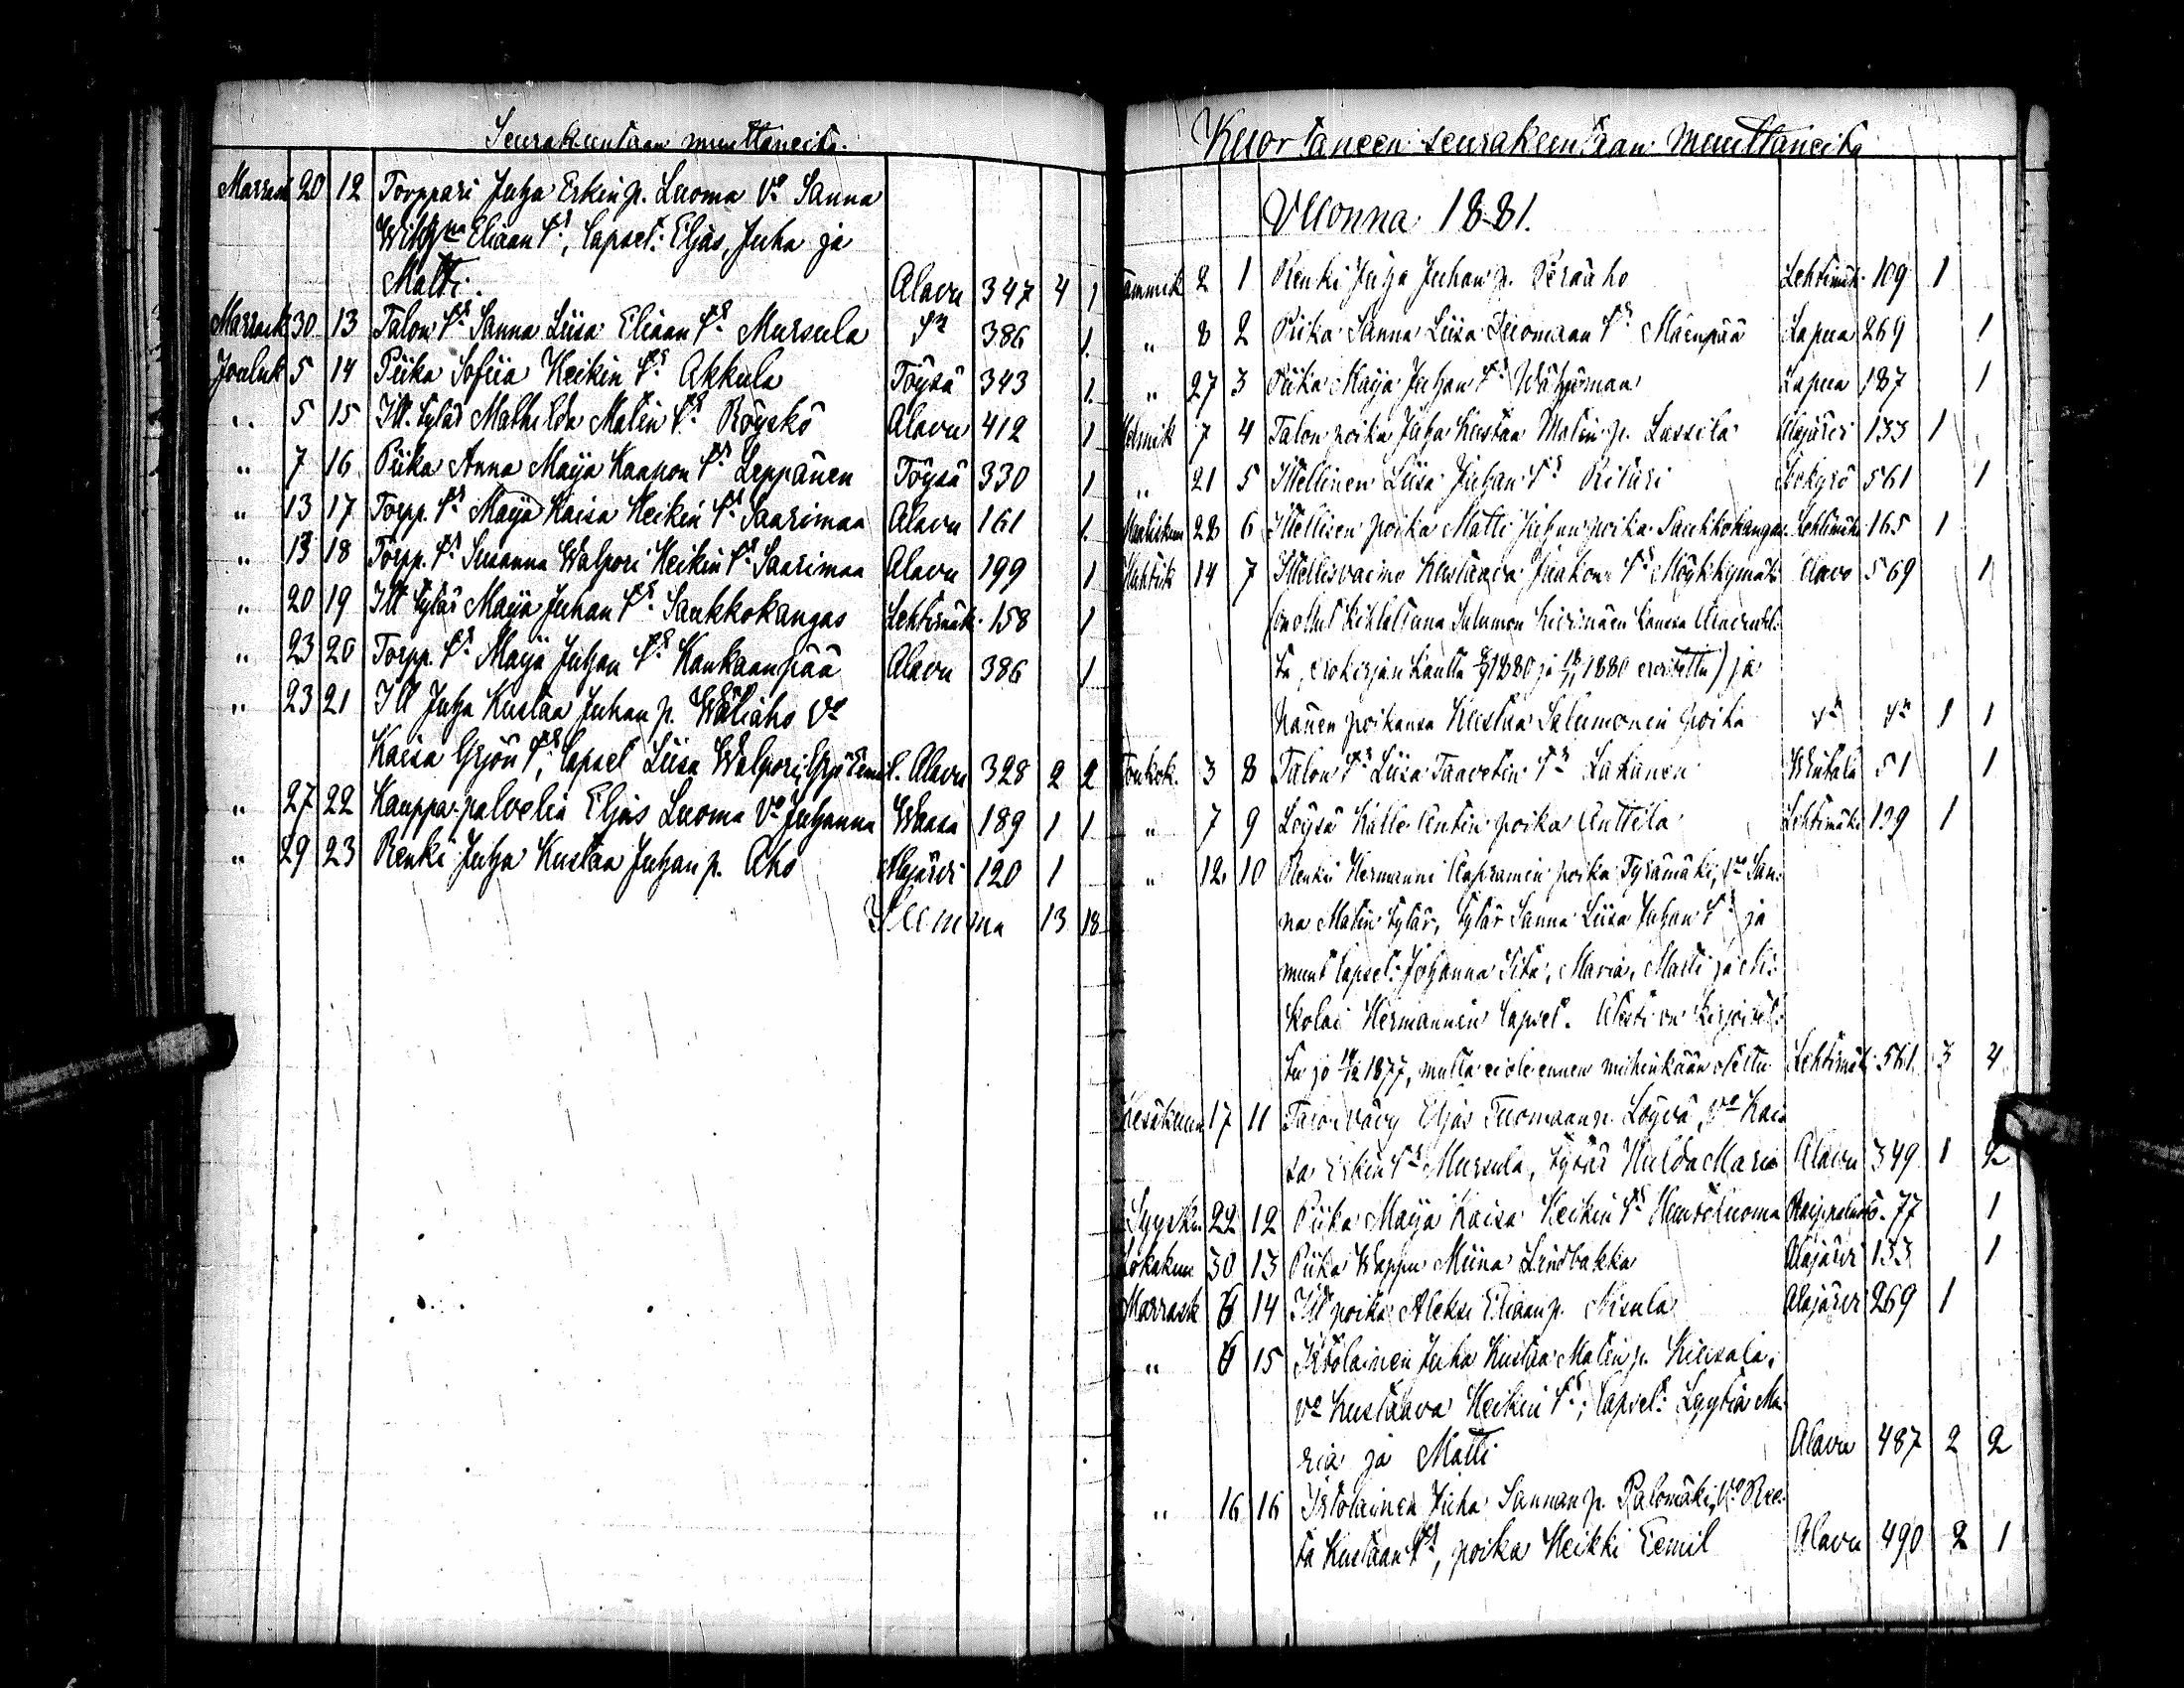 Seurakuntaan muuttaneita.
Marrask 20 12 Torppari Juha Erkin p. Luoma Vo Sanna
Eliaan tr, lapset: Eljas, Juha ja
Matti. Alavu 347 4 1
Marrask 30 13 Talon tr Sanna Liisa Eliaan tr Mursula 386 1
Jouluk 5 14 Piika Sofiia Heikin tr Akkula Töysä 343 1
" 5 15 Itt. tytär Mathilda Matin tr Röyskö Alavu 412 1
" 7 16 Piika Anna Maija Kaapon tr Leppänen Töysä 330 1
" 13 17 Torpp. tr Maija Kaisa Heikin tr Saarimaa Alavu 161 1
" 13 18 Torpp. tr Susanna Walpori Heikin tr Saarimaa Alavu 199 1
" 20 19 Itt tytär Maija Juhan tr Saukkokangas Lehtimäk. 158 1
" 23 20 Torpp. tr Maija Juhan tr Kankaanpää Alavu 386 1
" 23 21 Itt Juha Kustaa Juhan p. Wäliaho Vo
Kaisa Yrjön tr, lapset Liisa Walpori, Yrjö Eemel. Alavu 328 2 2
" 27 22 Kauppa-palvelia Eljas Luoma Vo Juhanna Waasa 189 1 1
" 29 23 Renki Juha Kustaa Juhan p. Aho Alajärvi 120 1
Summa 13 18
Kuortaneen seurakuntaan muuttaneita
Vuonna 1881.
Tammik 2 1 Renki Juha Juhan p. Peräaho Lehtimäk. 109 1
" 8 2 Piika Sanna Liisa Tuomaan tr Mäenpää Lapua 269 1
" 27 3 Piika Maija Juhan tr Lapua 187 1
Helmik 7 4 Talon poika Juha Kustaa Matin p. Lassila Alajärvi 133 1
" 21 5 Itellinen Liisa Juhan tr Isokyrö 561 1
Maaliskuu 28 6 Itellisen poika Matti Juhan poika Saukkokangas. Lehtimäki 165 1
Huhtik 14 7 Kustaava Jaakon tr Alavo 569 1
(on ollut kihlattuna Salomon kanssa
ta, erokirjan kautta 1880 ja 1880 eroitettu) ja
hänen poikansa Kustaa Salomonin poika 1 1
Toukok. 3 8 Talon tr Liisa Taavetin tr Lakanen Wirtala 51 1
" 7 9 Löysä Kalle Antin poika Anttila Lehtimäki 139 1
" 12. 10 Renki Hermanni Aapramin poika Tyrämäki, Vo San-
na Matin tytär, tytär Sanna Liisa Juhan tr ja
muut lapset: Johanna Maria, Matti ja Ni-
kolai Hermannin lapset. on kirjoitet-
tu jo 1877, mutta ei ole ennen mihinkään otettu Lehtimäk. 561 3 4
Kesäkuu 17 11 Talon vävy Eljas Tuomaan p. Löyvä, Vo Kai-
sa Erkin tr Mursula, tytär Hulda Maria Alavu 349 1 2
Syysk. 22 12 Piika Maija Kaisa Heikin tr 77 1
Lokakuu 30 13 Piika Wappu Miina Lindbakka Alajärvi 133 1
Marrask 6 14 Itt poika Aleksi Eliaan p. Nisula Alajärvi 269 1
" 6 15 Itsolainen Juha Kustaa Matin p. Kiusala,
Vo Kustaava Heikin tr; lapset: Lyytia Ma-
ria ja Matti Alavu 487 2 2
" 16 16 Itsolainen Juha Sannan p. Palomäki, Vo Ree-
ta Kustaan tr, poika Heikki Eemil Alavu 490 2 1